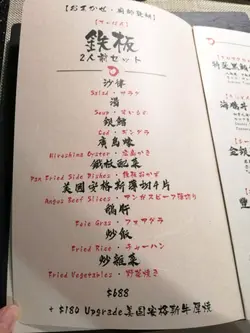 【おまかせ・廚師發辦】
【テッパン】
鉄板
2人前セット
沙律
Salad・サラダ
湯
Soup・すいもの
銀鱈
Cod・ギンダラ
廣島蠔
Hiroshima Oyster・広島かき
鉄板配菜
Pan Fried Side Dishes・鉄板おかず
美國安格斯薄切牛片
Angus Beef Slices・アンガスビーフ薄切り
鵝肝
Foie Gras・フォアグラ
炒飯
Fried Rice・チャーハン
炒雜菜
Fried Vegetables・野菜焼き
$688
+ $180 Upgrade美国安格斯牛厚燒